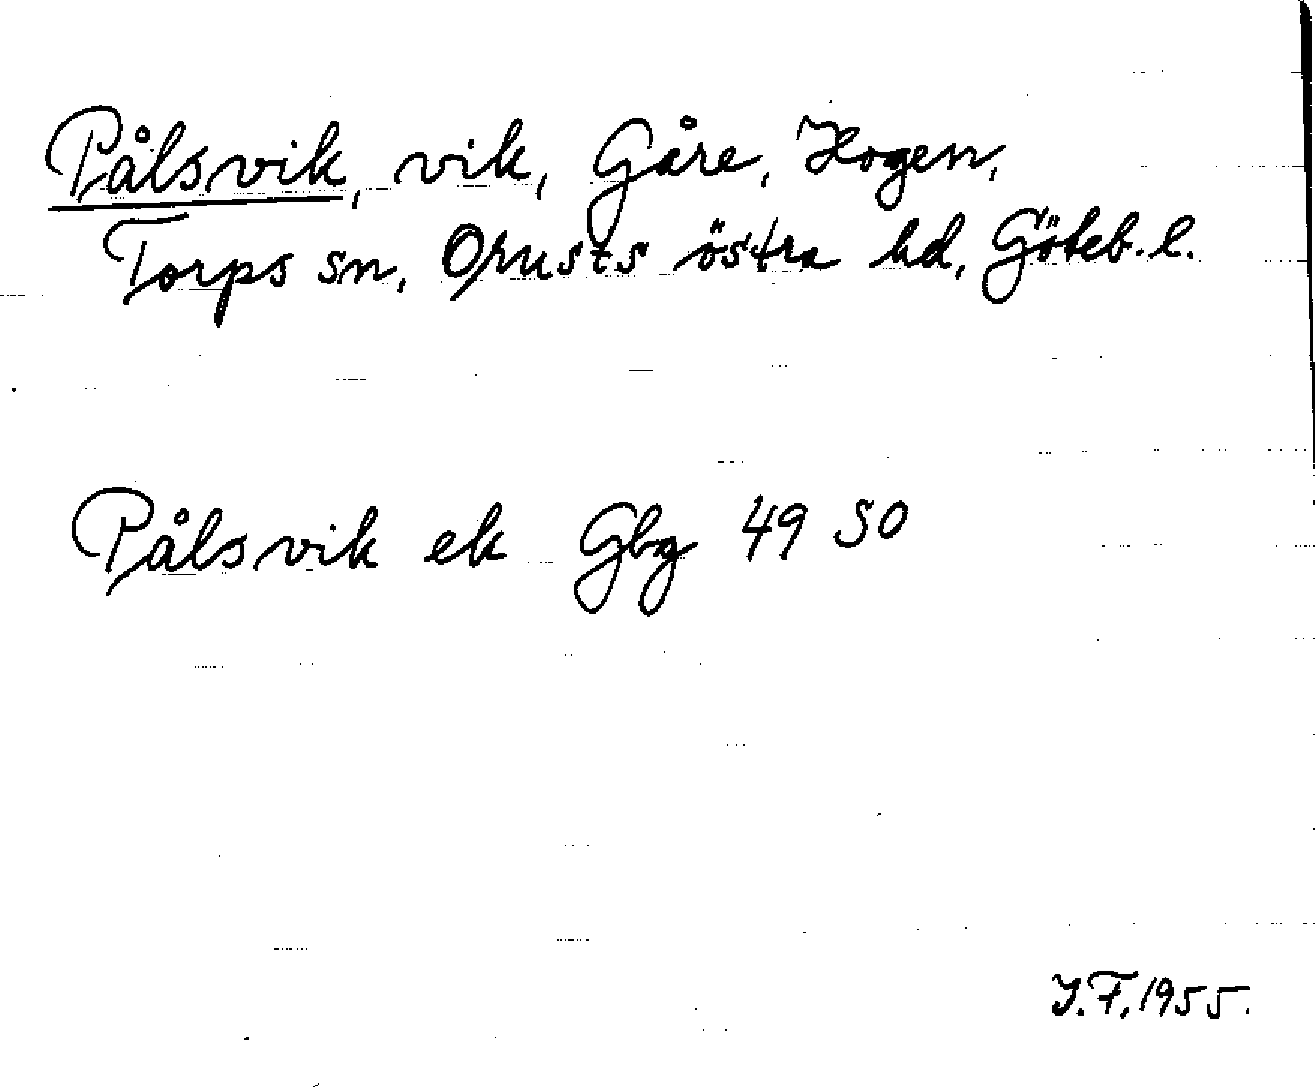 Pålsvik, vik, Gåre, Hogen,
Torps sn, Orusts östra hd, Göteb. l.
Pålsvik ek Gbg 49 SO
I.F. 1955.